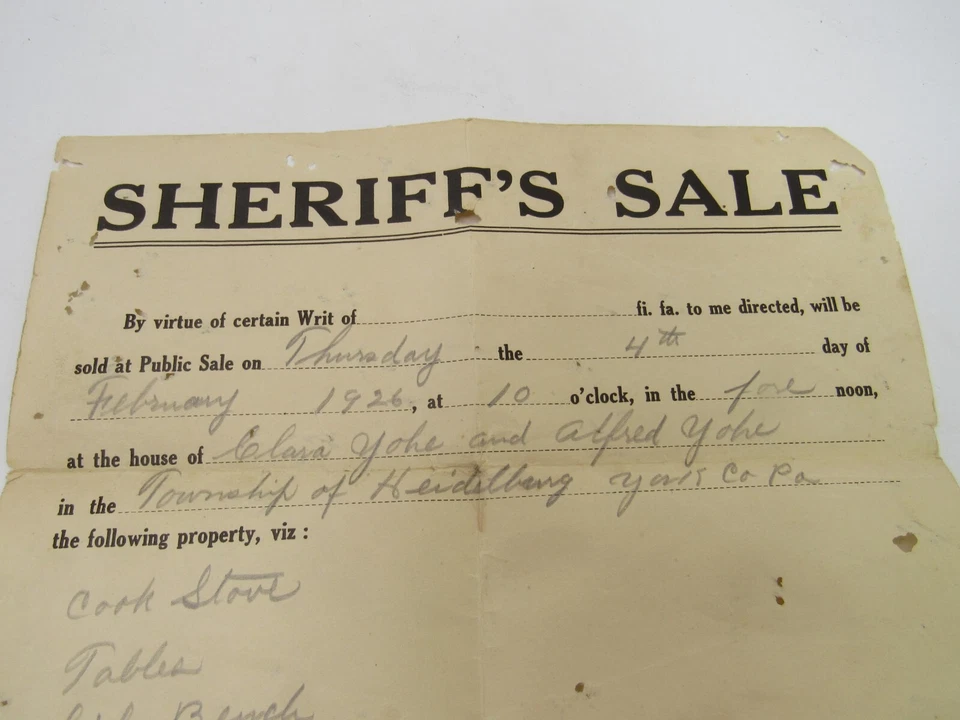 SHERIFF'S SALE
By virtue of certain Writ of fi. fa. to me directed, will be
sold at Public Sale on Thursday the 4th day of
February 1926, at 10 o'clock, in the fore noon,
at the house of Clara Yohe and Alfred Yohe
in the Township of Heidelburg York Co Pa
the following property, viz :
Cook Stove
Tables
Bench